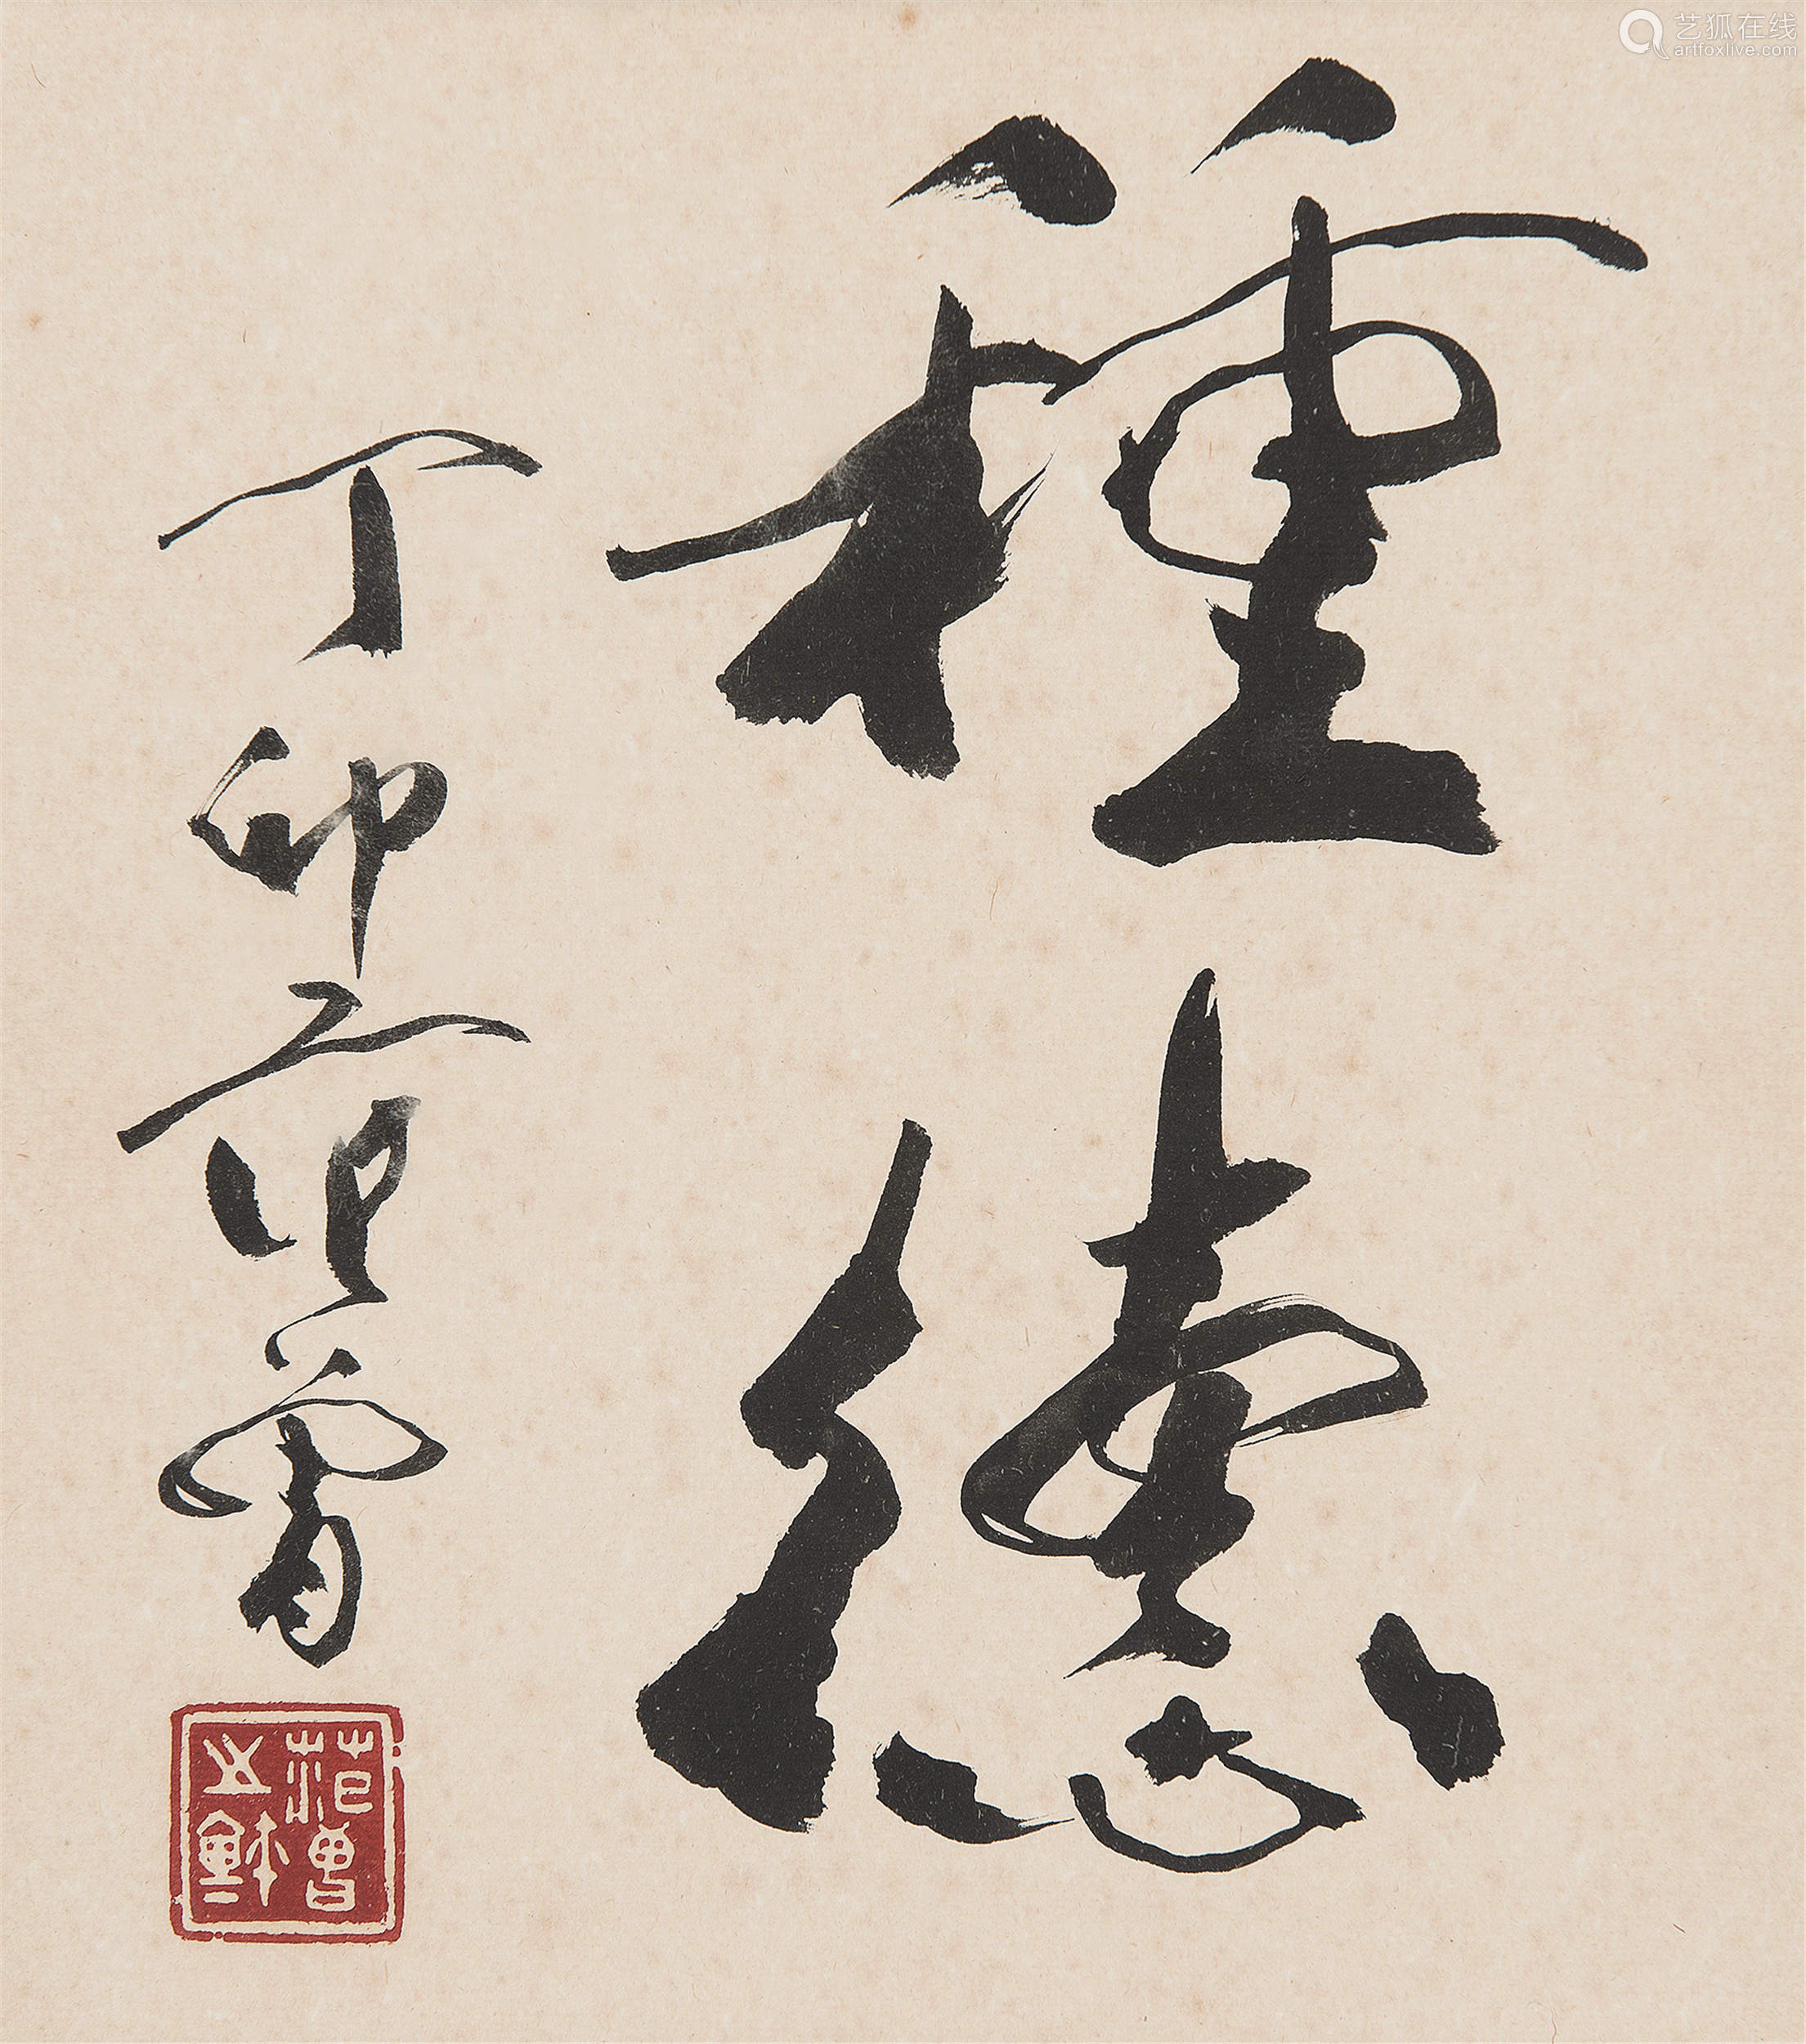 種德
丁卯范曾
范曾之鉥
艺狐在线
artfoxlive.com